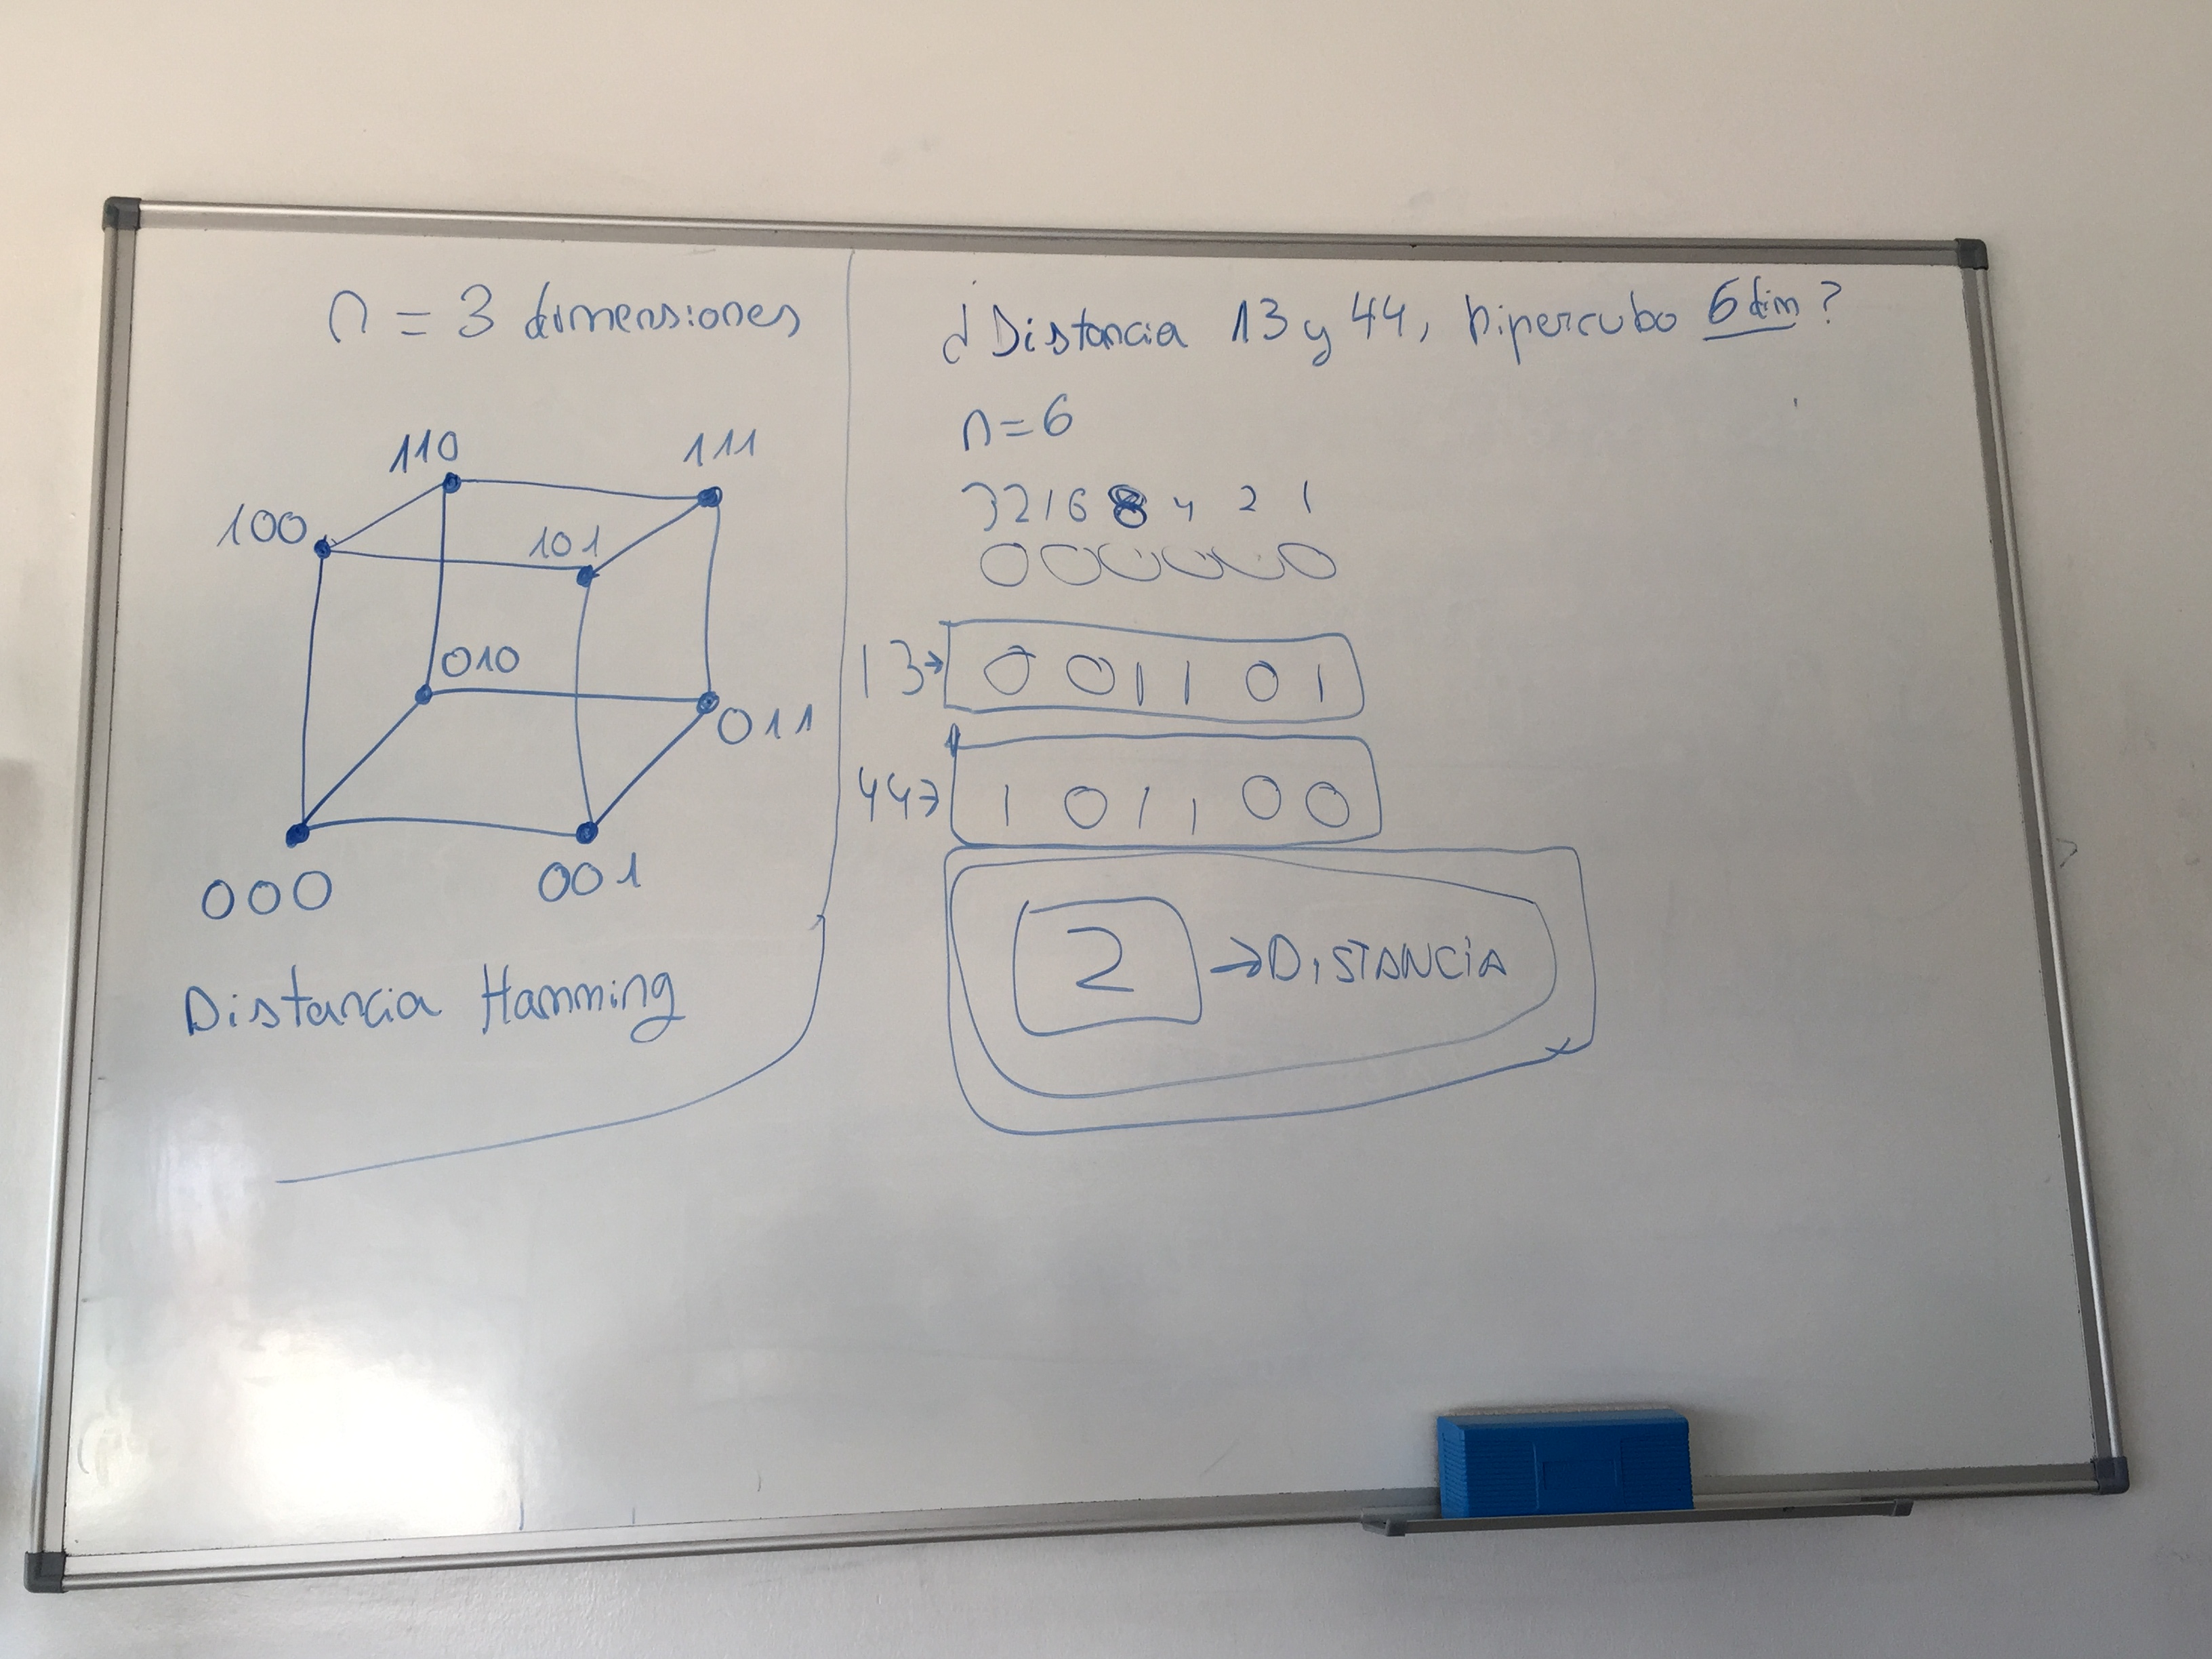 n = 3 dimensiones
110
111
100
101
010
011
000
001
Distancia Hamming
¿Distancia 13 y 44, hipercubo 6 dim?
n=6
32 16 8 4 2 1
0 0 0 0 0 0
13→ 0 0 1 1 0 1
44→ 1 0 1 1 0 0
2 → DISTANCIA